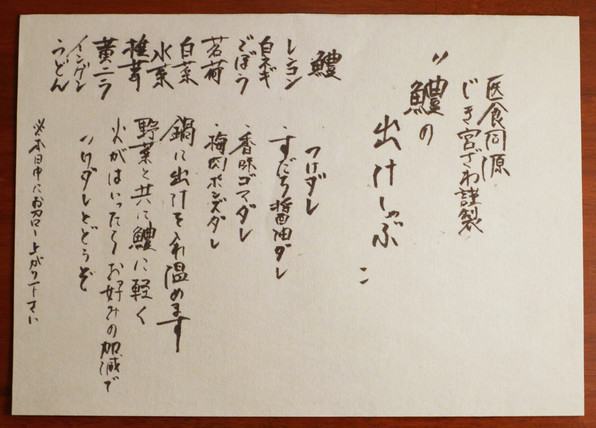 医食同源
じき宮ざわ謹製
〃鱧の
出汁しゃぶ〃
つけダレ
・すだち醤油ダレ
・香味ゴマダレ
・梅肉ポンズダレ
鱧
レンコン
白ネギ
ごぼう
茗荷
白菜
水菜
椎茸
黄ニラ
インゲン
うどん
鍋に出汁を入れ温めます
野菜と共に鱧に軽く
火がはいったらお好みの加減で
つけダレとどうぞ
※本日中にお召し上がり下さい